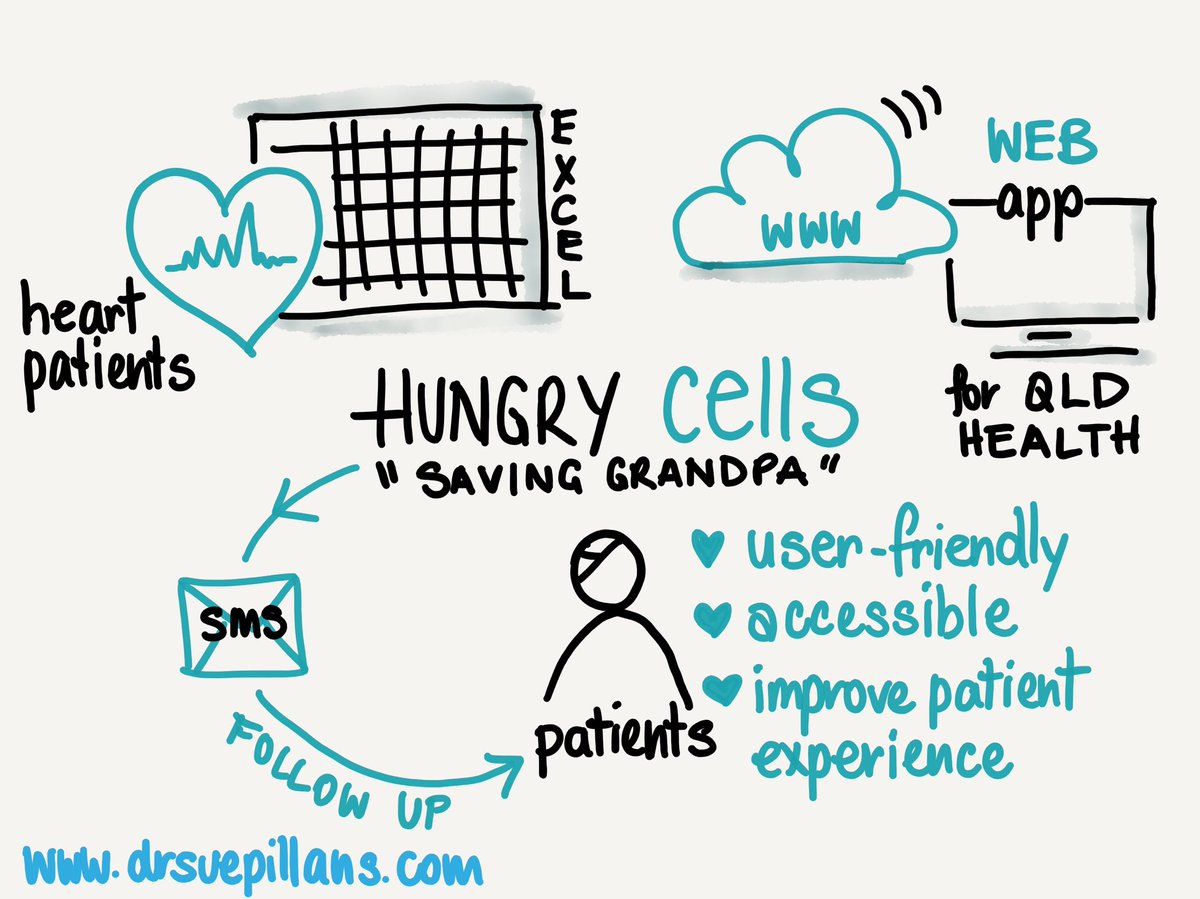 EXCEL
heart
patients
WWW
WEB
app
for QLD
HEALTH
HUNGRY cells
"SAVING GRANDPA"
SMS
FOLLOW UP
patients
user-friendly
accessible
improve patient
experience
www.drsuepillans.com